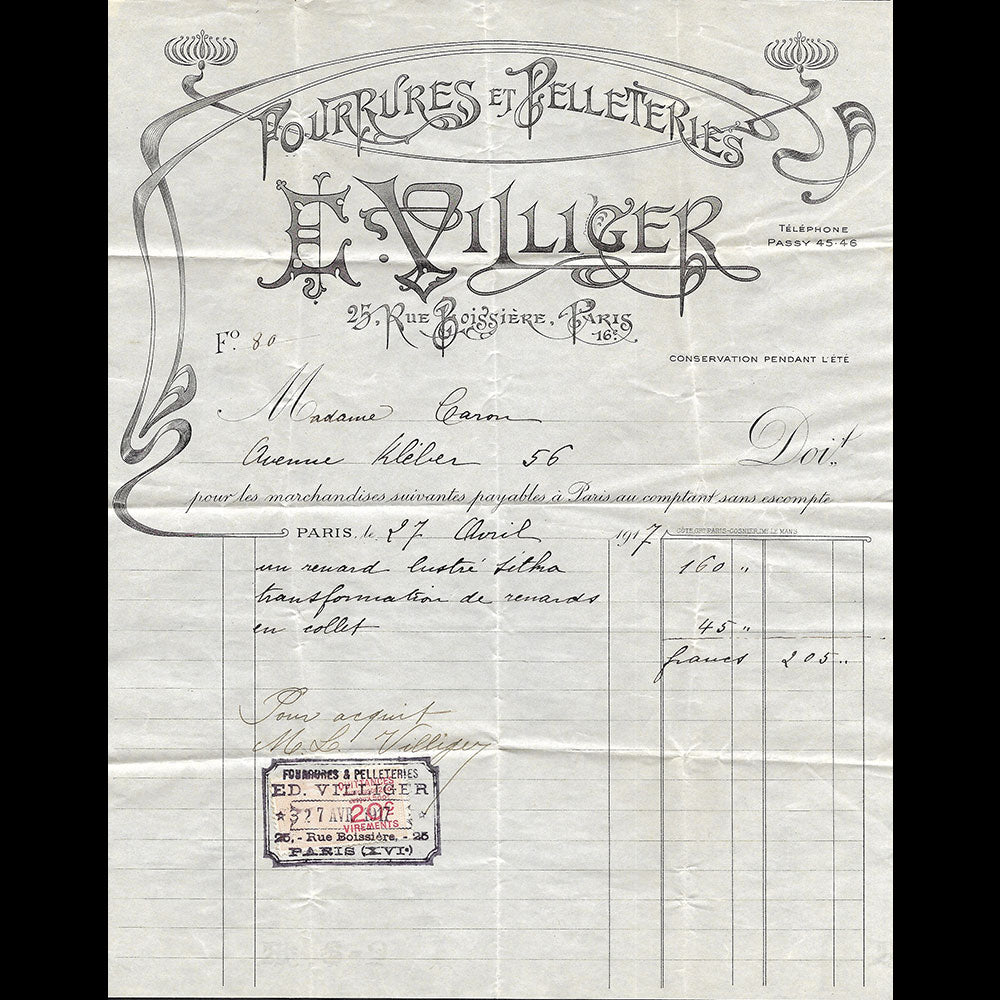 FOURRURES ET PELLETERIES
E. VILLIGER
TÉLÉPHONE
PASSY 45-46
25, RUE BOISSIÈRE, PARIS
16e
Fo. 80
CONSERVATION PENDANT L'ÉTÉ
Madame Caron
Doit
Avenue Kléber 56
pour les marchandises suivantes payables à Paris au comptant sans escompte
PARIS, le 27 Avril 1917
un renard lustré Sitka 160 "
transformation de renards
en collet 45 "
francs 205 "
Pour acquit
M. L. Villiger
FOURRURES & PELLETERIES
QUITTANCES
ED. VILLIGER
27 AVR 1917
20c
VIREMENTS
25, - Rue Boissière, - 25
PARIS (XVIe)